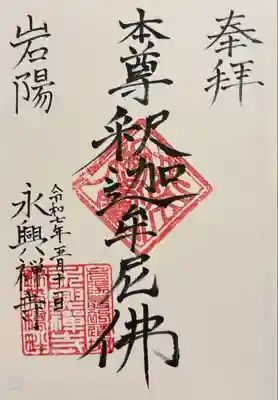 奉拝
本尊釈迦牟尼佛
岩陽
令和七年五月十一日
永興禅寺